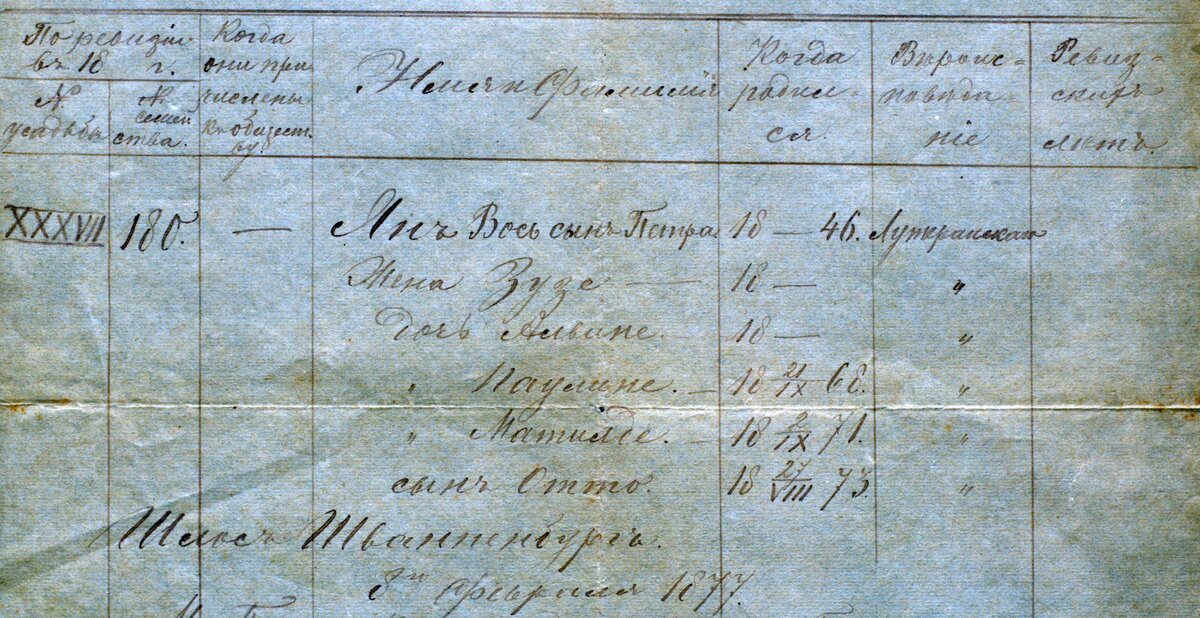 По ревизіи въ 18 г.
№ усадьбы
№ семейства.
Когда они причислены къ обществу.
Имя и Фамилія
Когда родился.
Вѣроисповѣданіе
Ревизскихъ лѣтъ.
XXXVII 180. — Янъ Вось сынъ Петра 18 — 46. Лютеранская
Жена Зузе — 18 — "
дочь Альвине. 18 — "
" Паулине. — 18 21/IX 68. "
" Матильде. — 18 2/IX 71. "
сынъ Отто. — 18 27/VIII 73. "
Шлосъ Шваненбургъ.
Февраля 1877.